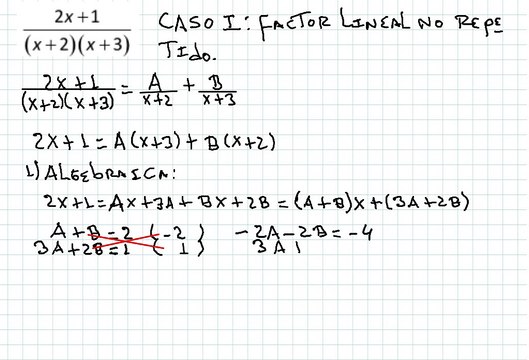 2x + 1
(x + 2)(x + 3)
CASO I: FACTOR LINEAL NO REPE
TIDO.
2x+1/(x+2)(x+3) = A/x+2 + B/x+3
2x+1 = A(x+3) + B(x+2)
1) ALGEBRAICA:
2x+1 = Ax+3A + Bx + 2B = (A+B)x + (3A+2B)
A + B = 2 (-2 -2A - 2B = -4
3A + 2B = 1 1) 3A